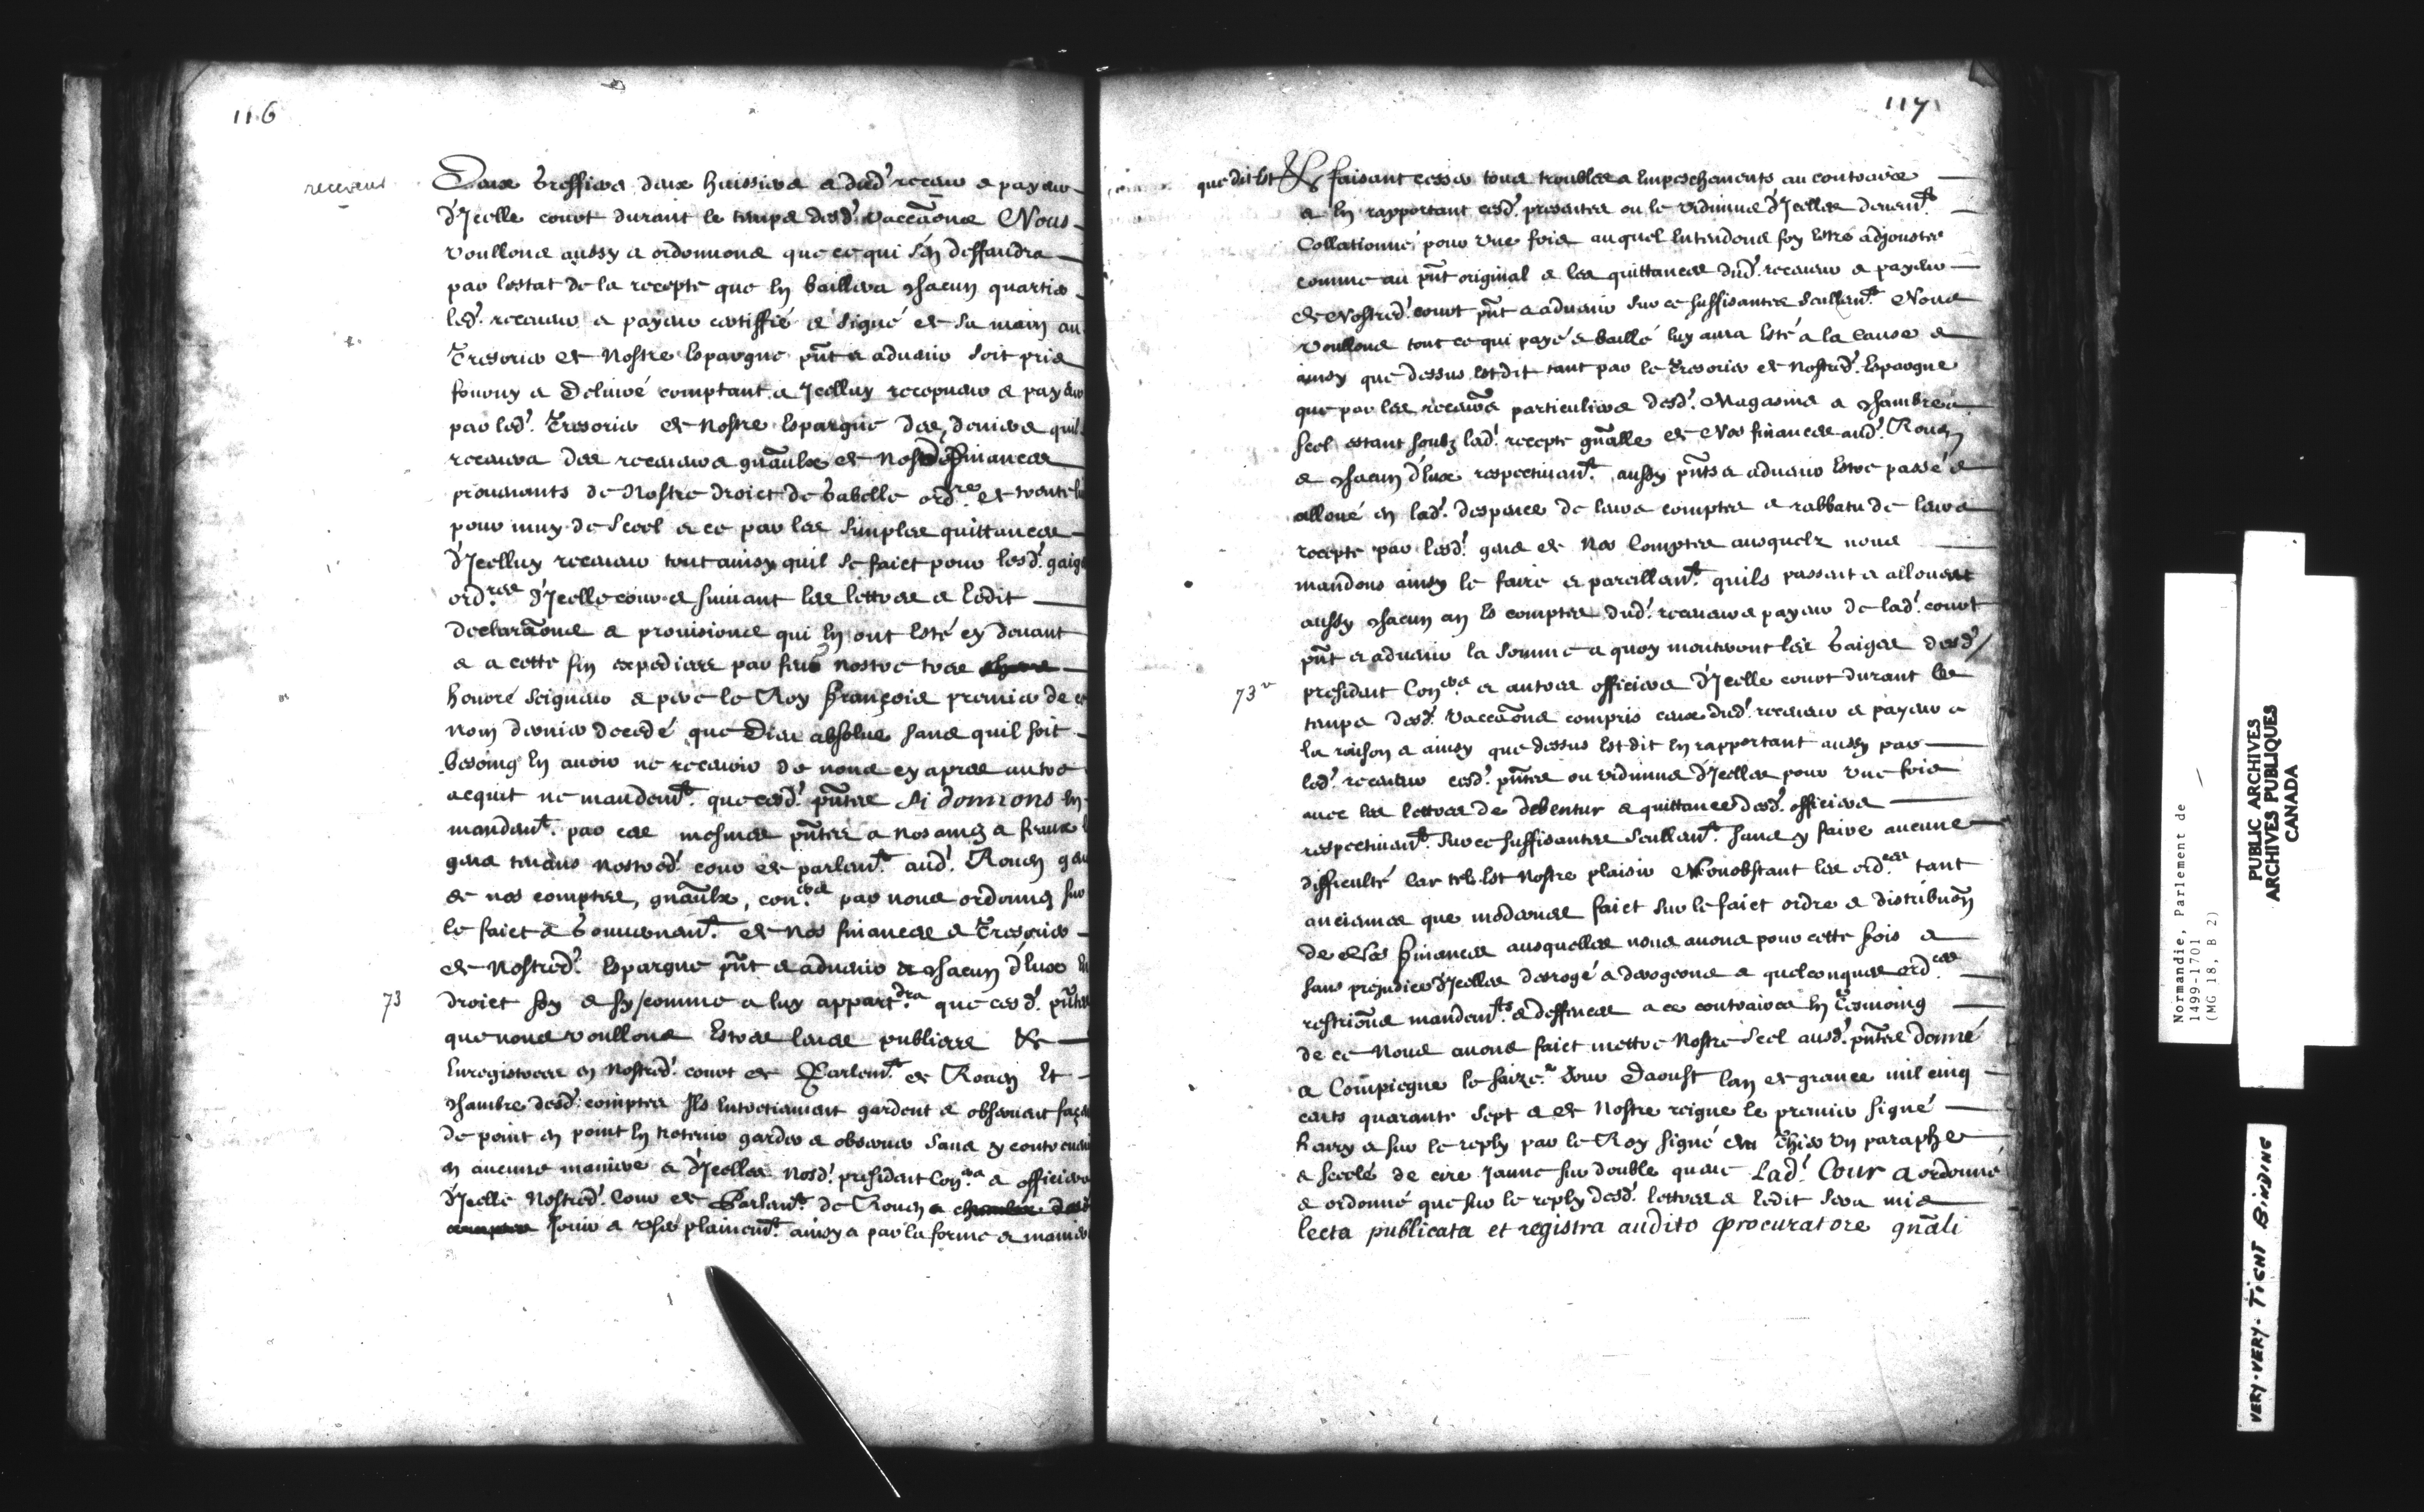 116
receveur
Deux greffiers deux huissiers & dud. receveur & payeur
d'Icelle court durant le temps desd. vaccaõns Nous
voullons aussy & ordonnons que ce qui s'en deffaudra
par lestat de la recepte que en baillera chacun quartier
led. receveur & payeur certiffié & signé de sa main au
Tresorier de Nostre Espargne pñt & advenir soit pris
fourny & Delivré comptant a Icelluy recepveur & payeur
par led. Tresorier de Nostre Espargne des deniers quil
recevra des receveurs gñaulx de nosd. finances
provenants de Nostre droict de Gabelle ord.re et trente
pour muy de Seel & ce par les simples quittances
d'Icelluy receveur tout ainsy quil se faict pour lesd. gaiges
ord.res d'Icelle cour & suivant les lettres & Edit
declaraõns & provisions qui en ont Esté cy devant
& a cette fin expediees par feu nostre tres
honoré Seigneur & pere le Roy françois premier de ce
nom dernier decedé que Dieu absolve sans quil soit
besoing en avoir ne recevoir de nous cy apres autre
acquit ne mandemt. que cesd. pñtes Si donnons en
mandemt. par ces mesmes pñtes a nos amez & feaux
gens tenans nostred. cour de parlemt. aud. Rouen gens
de nos comptes, gñaulx, con.ers par nous ordonnez sur
le faict & Gouvernemt. de nos finances & Tresorier
de Nostred. Espargne pñt & advenir & chacun d'Eux en
73
droict soy & sy comme a luy appart.dra que cesd. pñtes
que nous voullons Estre leues publiees &
Enregistrees en Nostred. court de Parlemt. de Rouen Et
chambre desd. comptes Ils Entretiennent gardent & observent facent
de point en point Entretenir garder & observer sans y contrevenir
en aucune maniere & d'Icelles Nosd. president con.ers & officiers
d'Icelle Nostred. Cour de Parlemt. de Rouen & chambre desd.
comptes Jouir & user plainemt. ainsy & par la forme & maniere
117
que dit Est & faisant cesser tous troubles & Empeschements au contraire
& En rapportant cesd. presentes ou le vidimus d'Icelles devemt.
Collationné pour une fois auquel Entendons foy Estre adjoustee
comme au pñt original & les quittances dud. receveur & payeur
de Nostred. court pñt & advenir sur ce suffisantes seullemt. Nous
voullons tout ce qui payé & baillé luy aura Esté a la cause &
ainsy que dessus Est dit tant par le Tresorier de Nostred. Espargne
que par les receveurs particuliers desd. Magasins & chambres a
seel estant soubz lad. recepte gñalle de Nos finances aud. Rouen
& chacun d'Eux respectivemt. aussy pñts & advenir Estre passé &
alloué en lad. despence de leurs comptes & rabbatu de leurs
recepte par lesd. gens de Nos Comptes ausquelz nous
mandons ainsy le faire & pareillemt. quils passent & allouent
aussy chacun an Es comptes dud. receveur & payeur de lad. court
pñt & advenir la somme a quoy monteront les Gaiges desd.
73 v
president Con.ers & autres officiers d'Icelle court durant le
temps desd. vaccaõns compris ceux dud. receveur & payeur a
la raison & ainsy que dessus Est dit En rapportant aussy par
led. receveur cesd. pñtes ou vidimus d'Icelles pour une fois
avec les lettres de debentur & quittances desd. officiers
respectivemt. sur ce suffisantes seullemt. sans y faire aucune
difficulté Car tel Est Nostre plaisir Nonobstant les ord.ces tant
anciennes que modernes faict sur le faict ordre & distribuõn
de Nos finances ausquelles nous avons pour cette fois &
sans prejudice d'Icelles derogé & derogeons & quelconques ord.ces
restriõns mandemts. & deffences a ce contraires En Tesmoing
de ce Nous avons faict mettre Nostre Seel ausd. pñtes donné
a Compiegne le seize.e Jour Daoust lan de grace mil cinq
cents quarante sept & de Nostre reigne le premier signé
henry & sur le reply par le Roy signé du Thier un paraphe
& seelé de cire Jaune sur double queue Lad. Cour a ordonné
& ordonné que sur le reply desd. lettres & Edit sera mis
lecta publicata et registra audito procuratore gñali
Normandie, Parlement de
1499-1701
(MG 18, B 2)
PUBLIC ARCHIVES
ARCHIVES PUBLIQUES
CANADA
VERY-VERY-TIGHT BINDING